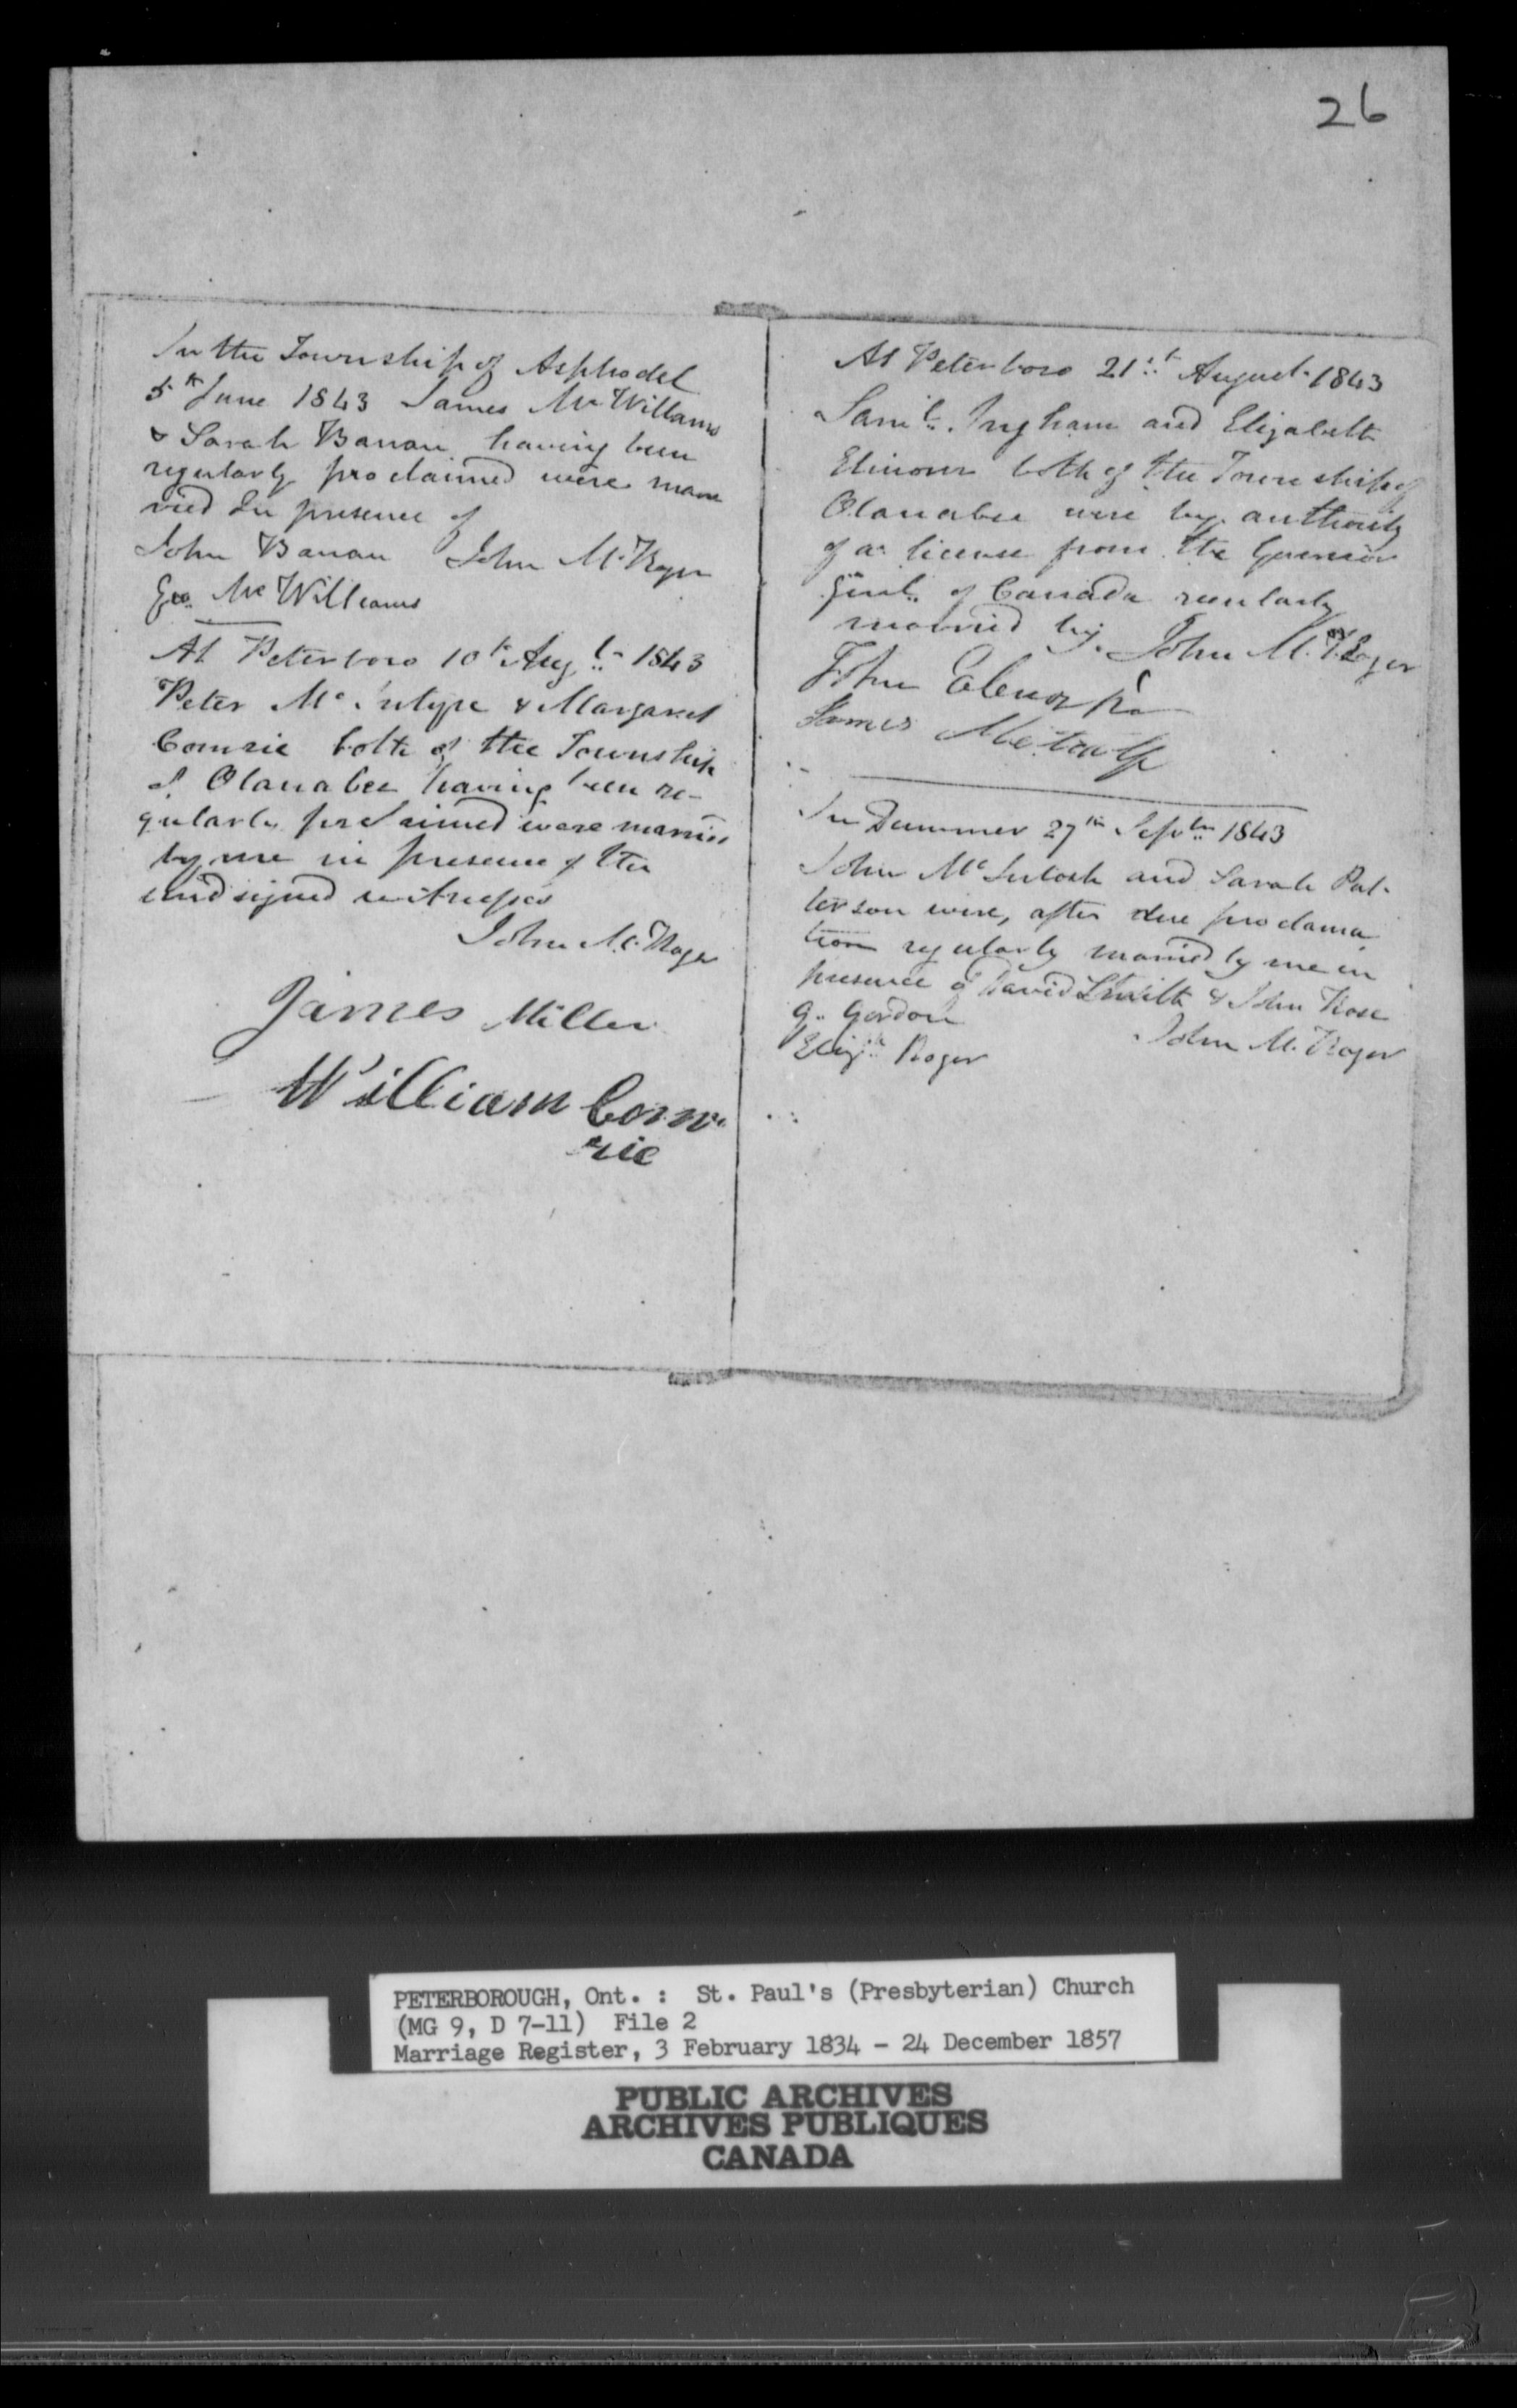 26
In the Township of Asphodel
5th June 1843 James McWilliams
& Sarah Banan having been
regularly proclaimed were marr
ried In presence of
John Banan John M. Roger
Geo. McWilliams
At Peterboro 10th Augt 1843
Peter McIntyre & Margaret
Comrie both of the Township
of Otanabee having been re-
gularly proclaimed were married
by me in presence of the
undsigned witnesses
John M. Roger
James Miller
William Com
rie
At Peterboro 21st August 1843
Saml. Ingham and Elizabeth
Elinour both of the Township of
Otanabee were by authority
of a license from the Governor
Genl. of Canada reularly
married by John M. Roger
John
James Metcalf
In Dummer 27th Septbr 1843
John McIntosh and Sarah Pat-
terson were, after due proclama
tion regularly married by me in
presence of David Smith & John Rose
G. Gordon
John M. Roger
Elizth Roger
PETERBOROUGH, Ont. : St. Paul's (Presbyterian) Church
(MG 9, D 7-11) File 2
Marriage Register, 3 February 1834 - 24 December 1857
PUBLIC ARCHIVES
ARCHIVES PUBLIQUES
CANADA